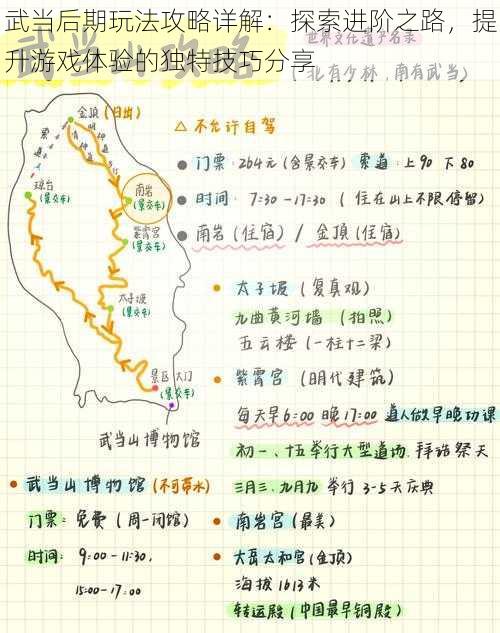 武当后期玩法攻略详解：探索进阶之路，提
升游戏体验的独特技巧分享
武当山攻略
世界文化遗产名录
（北有少林，南有武当）
金顶（日出）
索道
琼台
（景交车）
南岩
（景交车）
紫霄宫
（景交车）
太子坡
（景交车）
景区大门
（景交车）
武当山博物馆
△ 不允许自驾
● 门票：264元（含景交车） 索道：上90 下80
● 时间：7:30-17:30（住在山上不限停留）
● 南岩（住宿）/ 金顶（住宿）
● 太子坡（复真观）
九曲黄河墙（拍照）
五云楼（一柱十二梁）
● 紫霄宫（明代建筑）
每天早6:00 晚17:00 道人做早晚功课
初一、十五举行大型道场.拜诰祭天
三月三、九月九 举行 3-5天庆典
● 武当山博物馆（不可带水）
门票：免费（周一闭馆）
时间：9:00-11:30,
15:00-17:00
● 南岩宫（最美）
● 大岳太和宫（金顶）
海拔1613米
转运殿（中国最早铜殿）